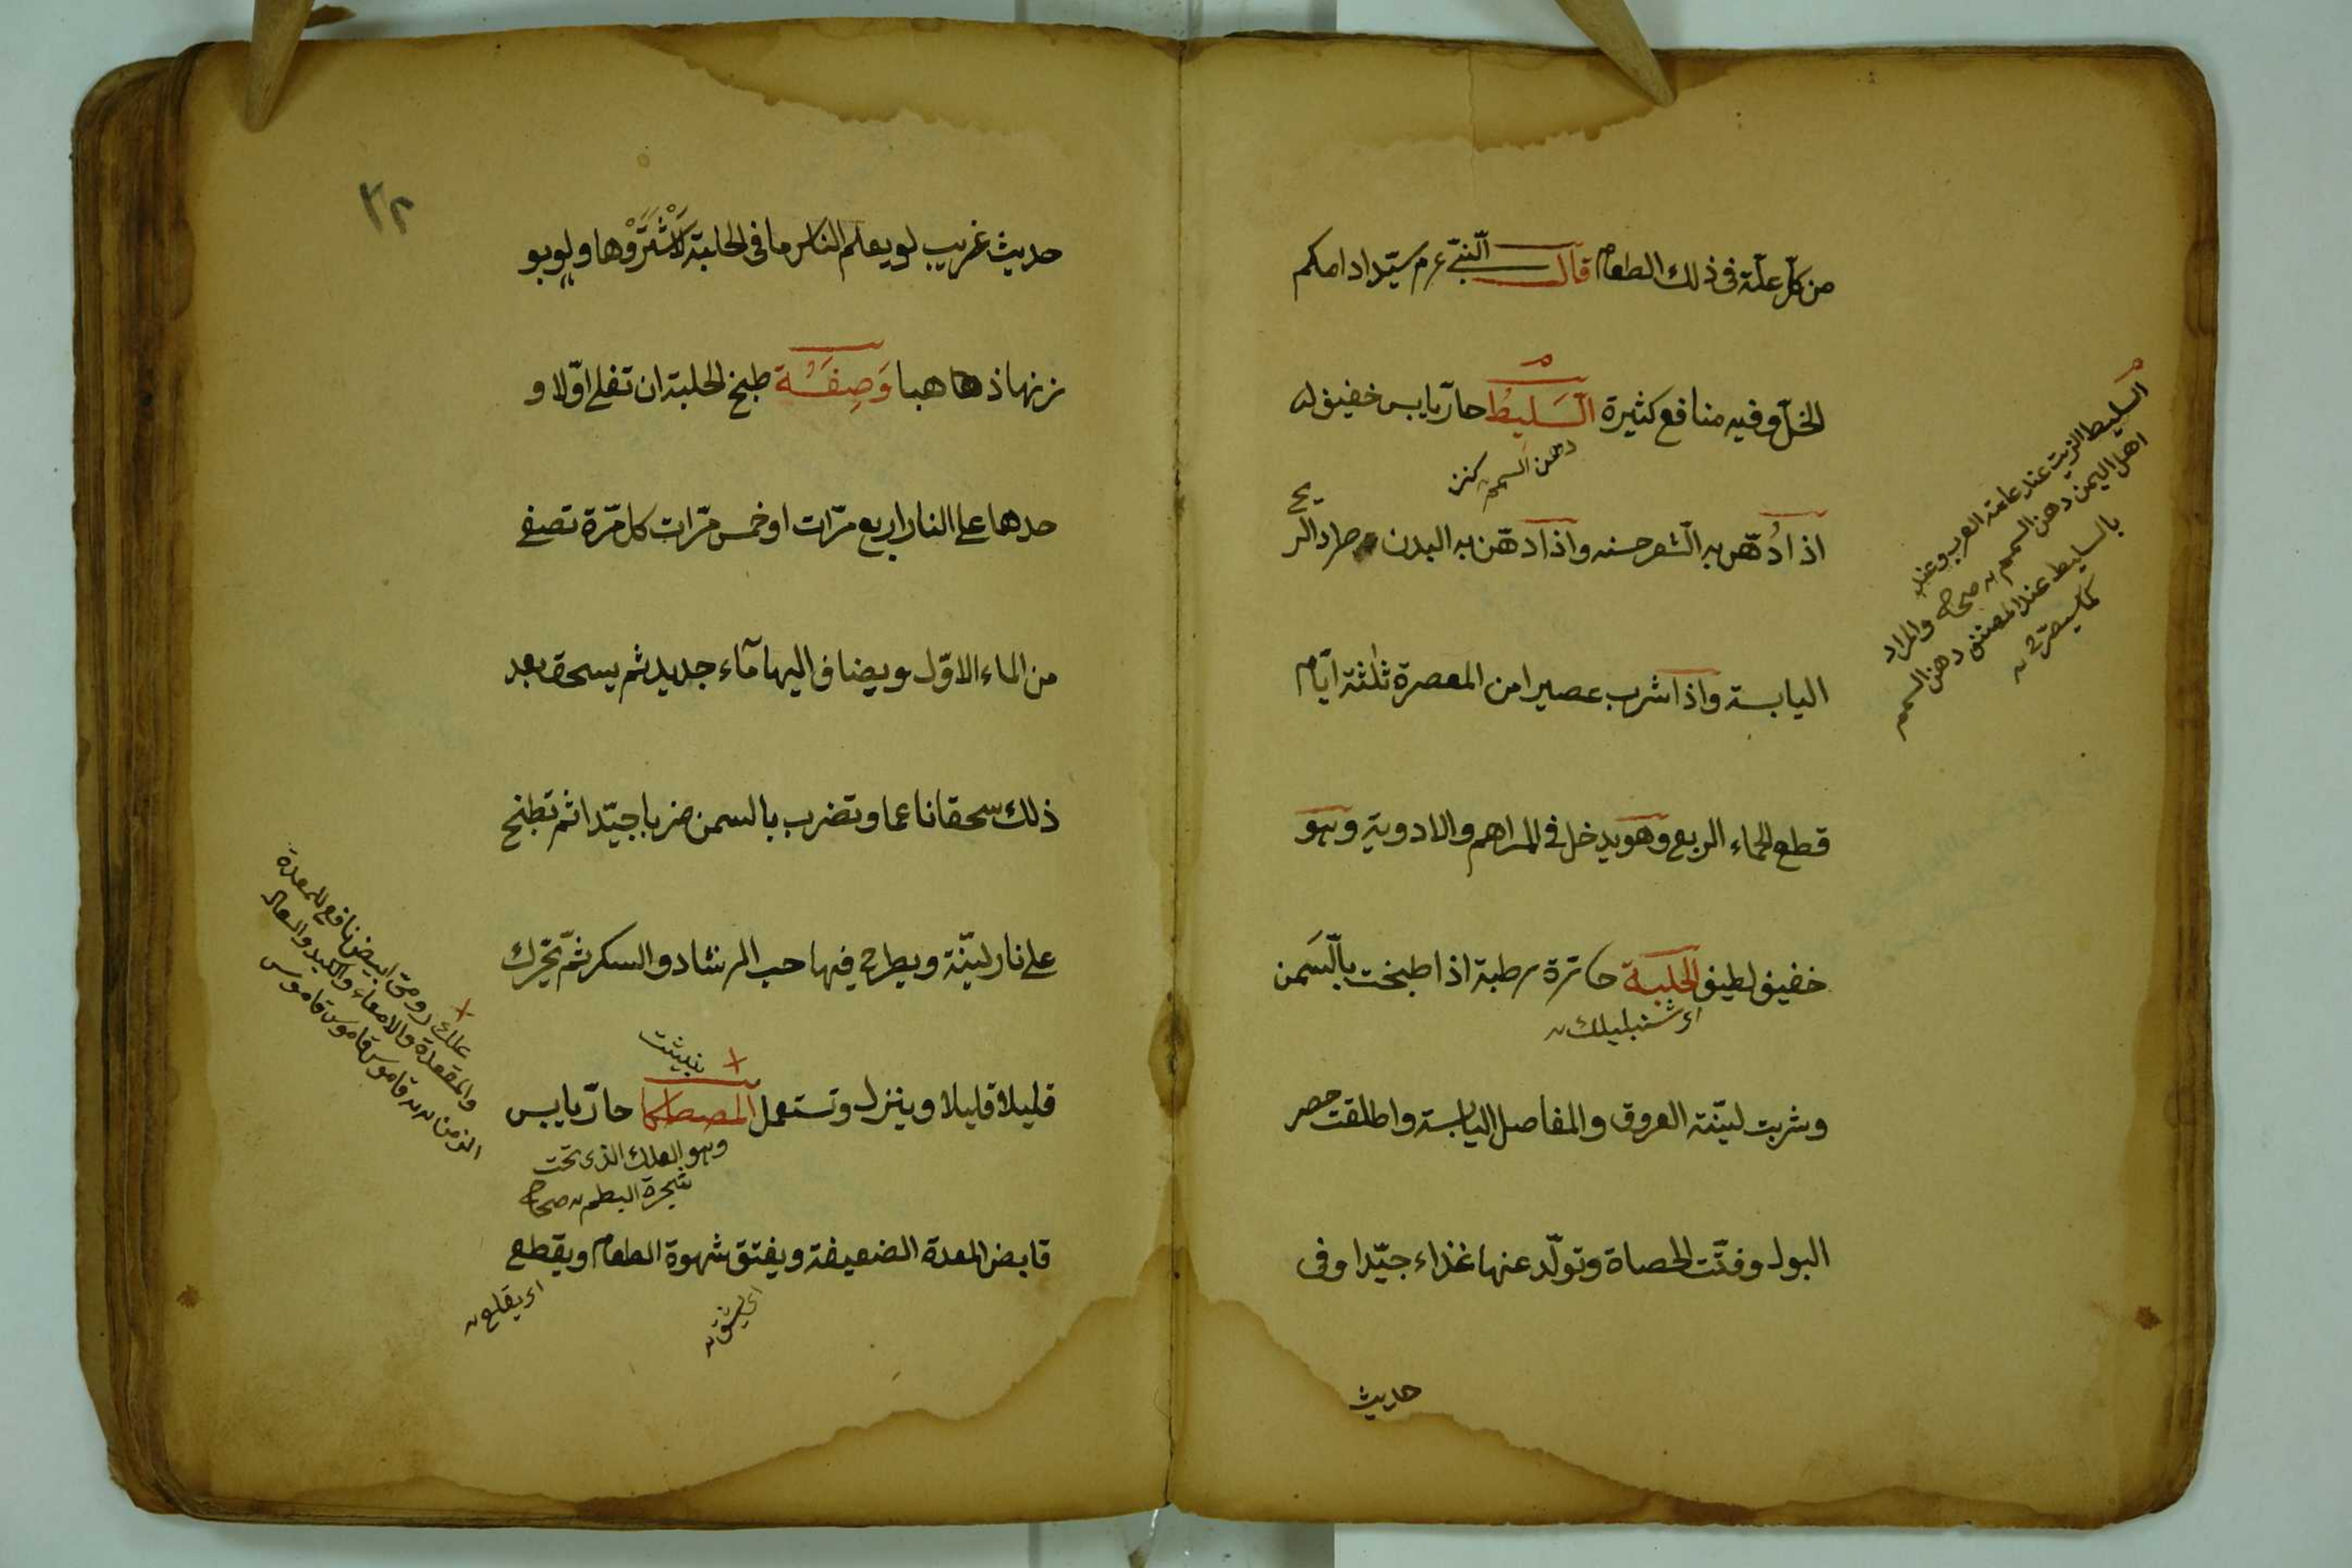 من كلّ علّة فى ذلك الطعام قال النّبىّ عم سيّد ادامكم
الخلّ وفيه منافع كثيرة السَّلِيطُ حارّ يابس خفيف له
دهن السمسم كنز
اذا دُهّن به الشعر حسنه واذا دهّن به البدن طرد الريح
اليابسة واذا شرب عصيرا من المعصرة ثلثة ايّام
قطع الحماء الربع وهو يدخل فى المراهم والادوية وهو
خفيف لطيف الحلبة حارّة رطبة اذا طبخت بالسّمن
اى شنبليلك
وشربت ليّنة العروق والمفاصل اليابسة واطلقت حصر
البول وفتّت الحصاة وتولّد عنها غذاء جيّدا وفى
حديث
السليط الزيت عند عامة العرب وعند
اهل اليمن دهن السمسم صحاح والمراد
بالسليط عند المصنف دهن السمسم
كما سيصرّح
٣٢
حديث غريب لو يعلم الناس ما فى الحلبة لَاشْتَرَوْها ولو بو
زنها ذهبا وَصِفَةُ طبخ الحلبة ان تغلى اوّلا و
حدها على النار اربع مرّات او خمس مرّات كل مرّة تصفى
من الماء الاوّل ويضاف اليها مآء جديد ثم يسحق بعد
ذلك سحقا ناعما وتضرب بالسمن ضربا جيّدا ثم تطبخ
على نار ليّنة ويطرح فيها حب الرشاد والسكر ثمّ تحرك
قليلا قليلا وينزل وتستعمل المصطكا حارّ يابس
وهو العلك الذى تحت
شجرة البطم صحاح
قابض المعدة الضعيفة ويفتق شهوة الطعام ويقطع
اى يشق
اى يقلع
علك رومىّ ابيض نافع للمعدة
والمقعدة والامعاء والكبد والسعال
المزمن قاموس قاموس قاموس